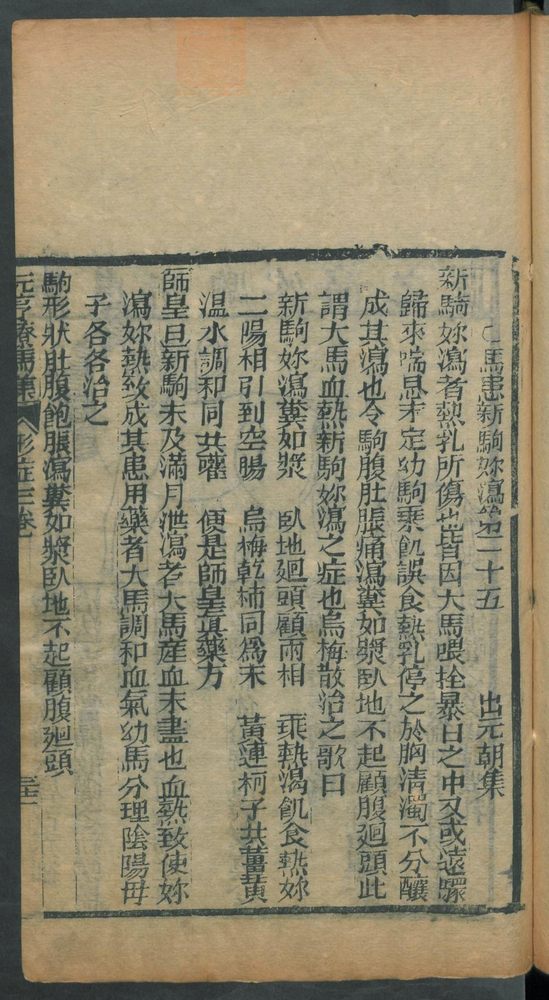 ○馬患新駒妳瀉第二十五 出元朝集
新駒妳瀉者熱乳所傷也皆因大馬喂拴暴日之中又或遠驟
歸來喘息未定幼駒乘飢誤食熱乳停之於胸清濁不分釀
成其瀉也令駒腹肚脹痛瀉糞如漿臥地不起顧腹廻頭此
謂大馬血熱新駒妳瀉之症也烏梅散治之歌曰
新駒妳瀉糞如漿 臥地廻頭顧兩相 乘熱渴飢食熱妳
二陽相引到空腸 烏梅乾柿同爲末 黃連柯子共薑黃
温水調和同共嚾 便是師皇真藥方
師皇曰新駒未及滿月泄瀉者大馬産血未盡也血熱致使妳
瀉妳熱致成其患用藥者大馬調和血氣幼馬分理陰陽毋
子各各治之
駒形狀肚腹飽脹瀉糞如漿臥地不起顧腹廻頭
元亨療馬集 形症三卷